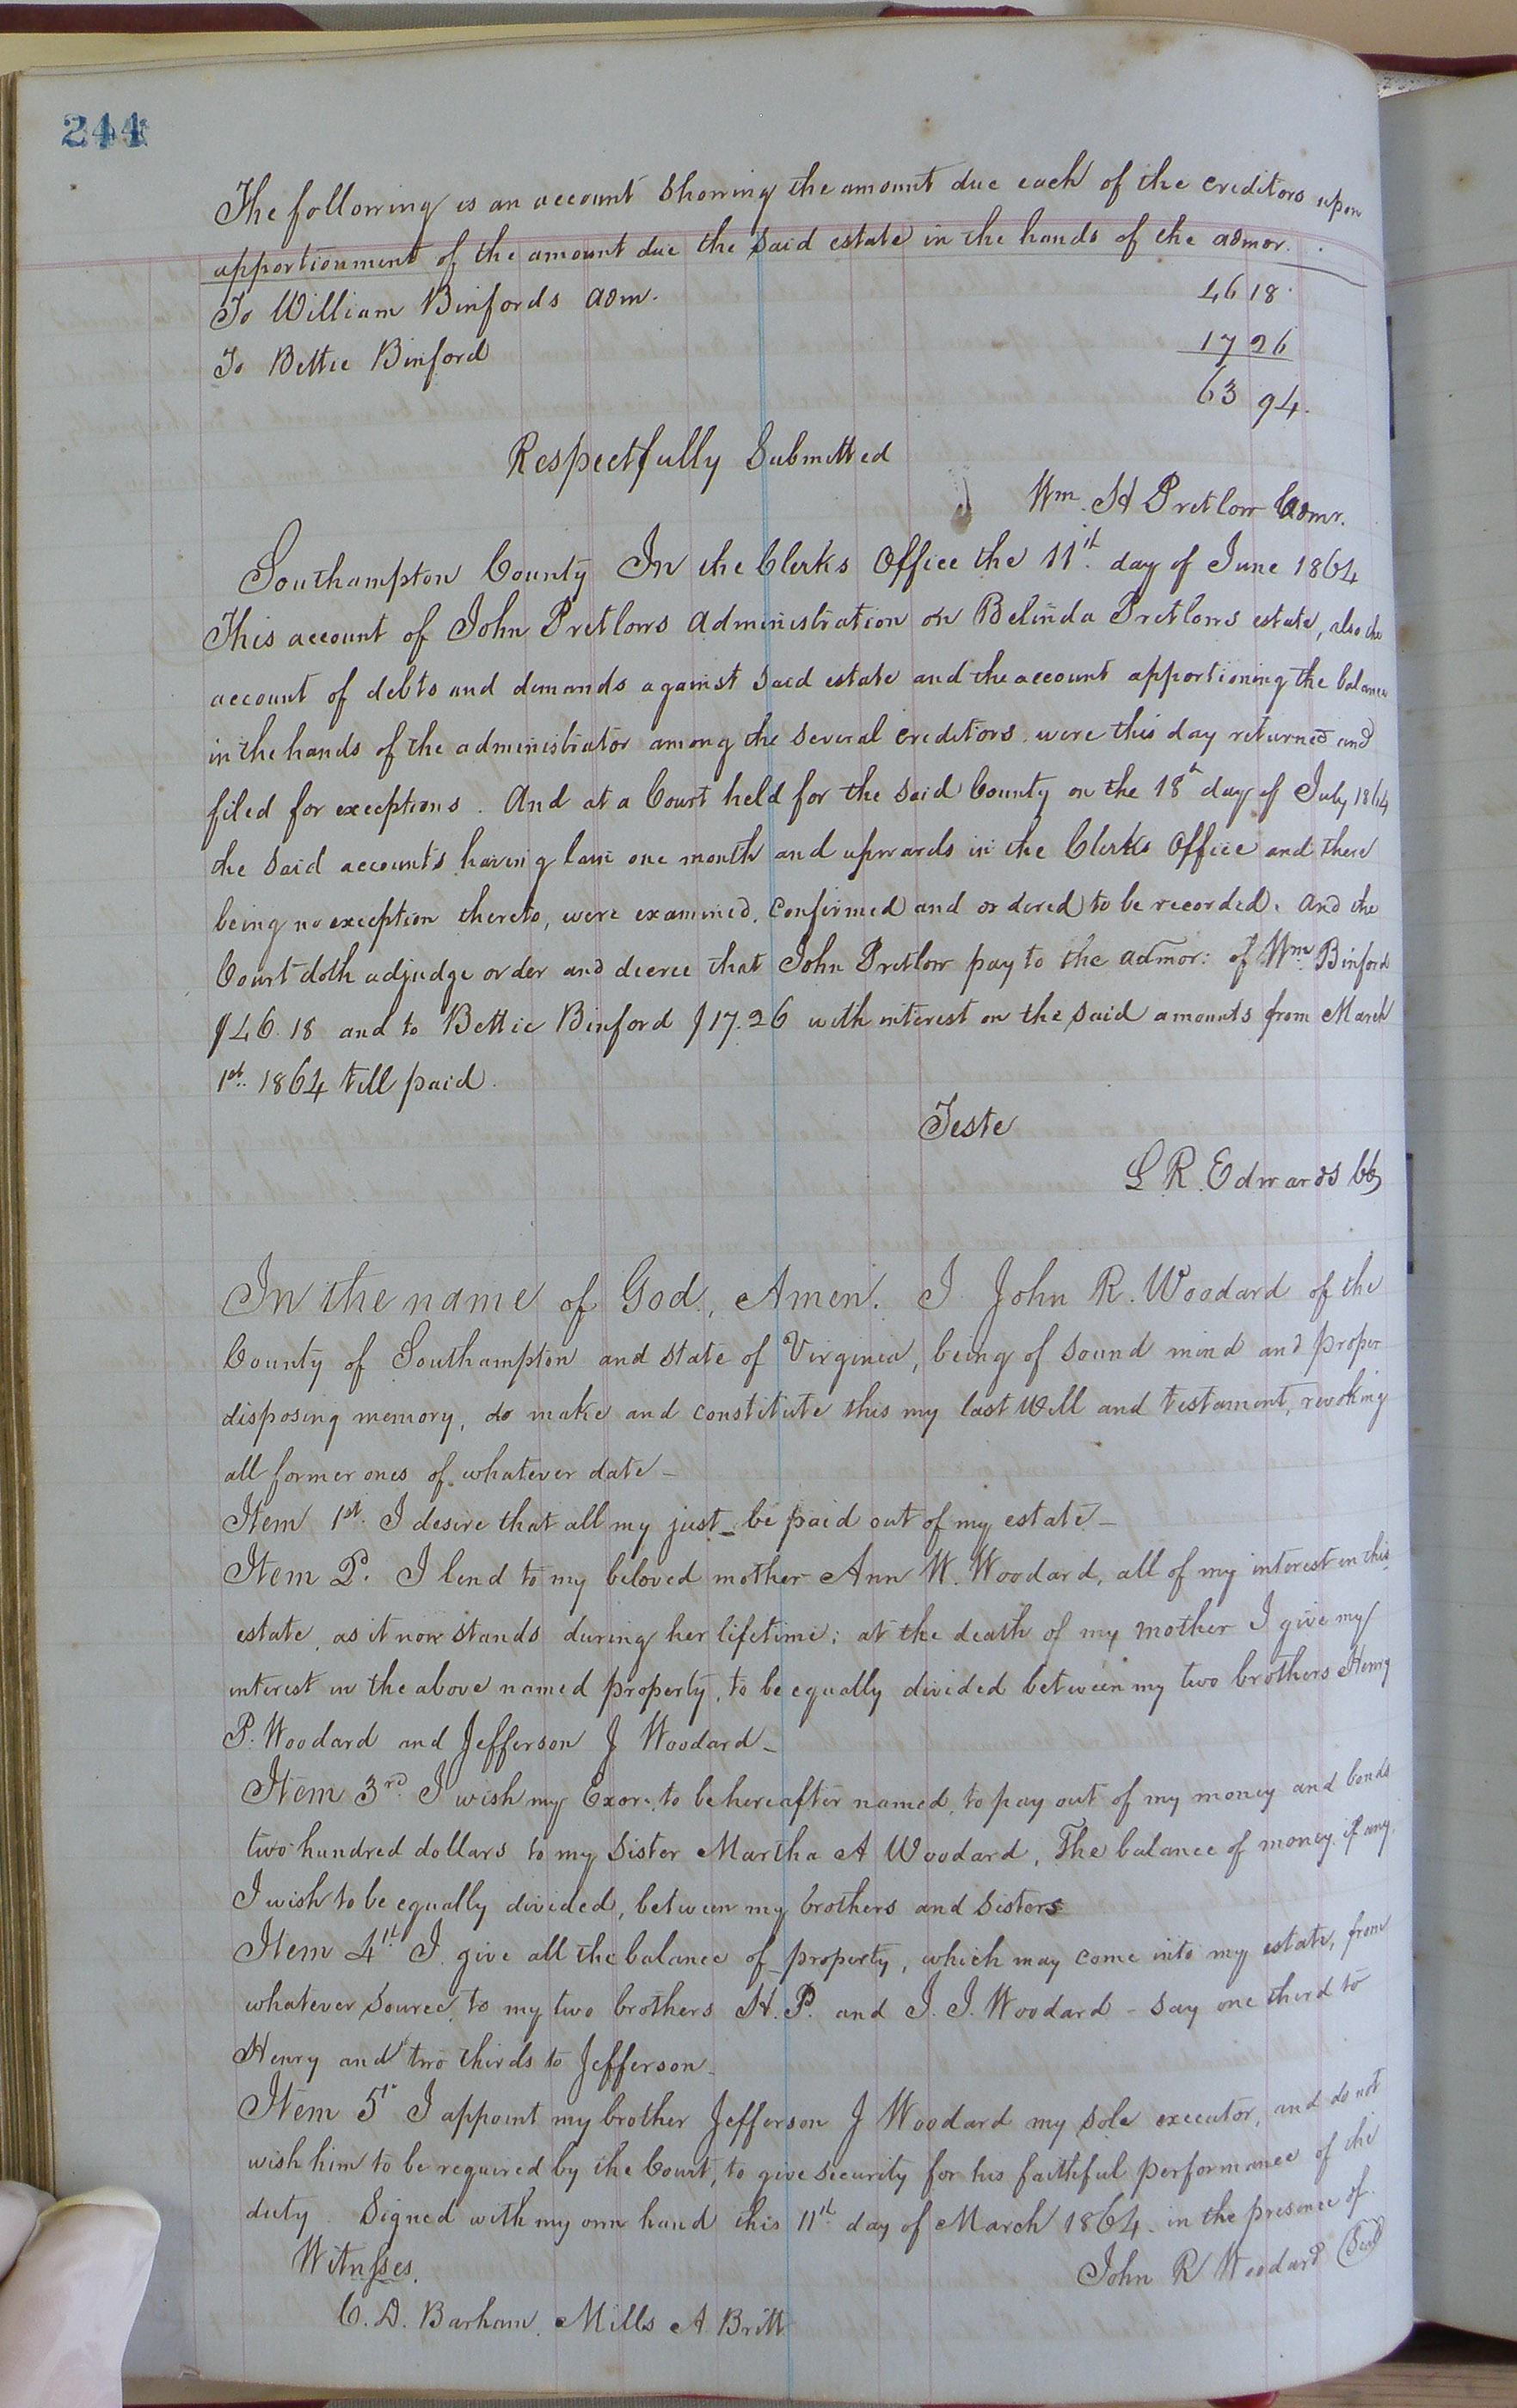 244
The following is an account showing the amount due each of the creditors upon
apportionment of the amount due the said estate in the hands of the admor.
To William Binfords adm. 46 18
To Bettie Binford 17 26
63 94.
Respectfully Submitted
Wm. H Pretlow Comr.
Southampton County In the Clerks Office the 11th day of June 1864
This account of John Pretlows administration on Belinda Pretlows estate, also the
account of debts and demands against said estate and the account apportioning the balance
in the hands of the administrator among the several creditors were this day returned and
filed for exceptions. And at a Court held for the said County on the 18th day of July 1864
the said accounts having lain one month and upwards in the Clerks Office and there
being no exception thereto, were examined, confirmed and ordered to be recorded. And the
Court doth adjudge order and decree that John Pretlow pay to the admor: of Wm. Binford
$46.18 and to Bettie Binford $17.26 with interest on the said amounts from March
1st. 1864 till paid.
Teste
L R. Edwards Ck
In the name of God, Amen. I John R. Woodard of the
County of Southampton and state of Virginia, being of sound mind and proper
disposing memory, do make and constitute this my last Will and testament, revoking
all former ones of whatever date –
Item 1st. I desire that all my just – be paid out of my estate –
Item 2. I lend to my beloved mother Ann W. Woodard, all of my interest in this
estate, as it now stands during her lifetime; at the death of my mother I give my
interest in the above named property, to be equally divided between my two brothers Henry
P. Woodard and Jefferson J Woodard –
Item 3rd. I wish my Exor. to be hereafter named, to pay out of my money and bonds
two hundred dollars to my Sister Martha A Woodard, The balance of money if any,
I wish to be equally divided, between my brothers and Sisters
Item 4th I give all the balance of property, which may come into my estate, from
whatever source, to my two brothers H. P. and J. J. Woodard – say one third to
Henry and two thirds to Jefferson –
Item 5th I appoint my brother Jefferson J Woodard my sole executor, and do not
wish him to be required by the Court, to give security for his faithful performance of the
duty. Signed with my own hand this 11th day of March 1864. in the presence of
Witnesses. John R Woodard (Seal)
C. D. Barham. Mills A Britt